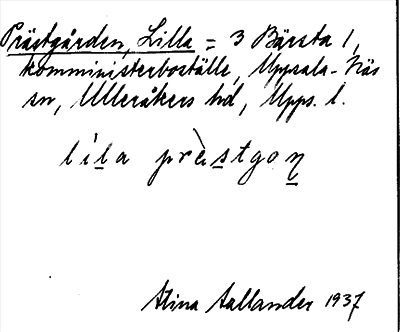 Prästgården, Lilla = 3 Bärsta 1,
komministerboställe, Uppsala-Näs
sn, Ulleråkers hd, Upps. l.
lìl̲a près̲tgon̲
Stina Sallander 1937